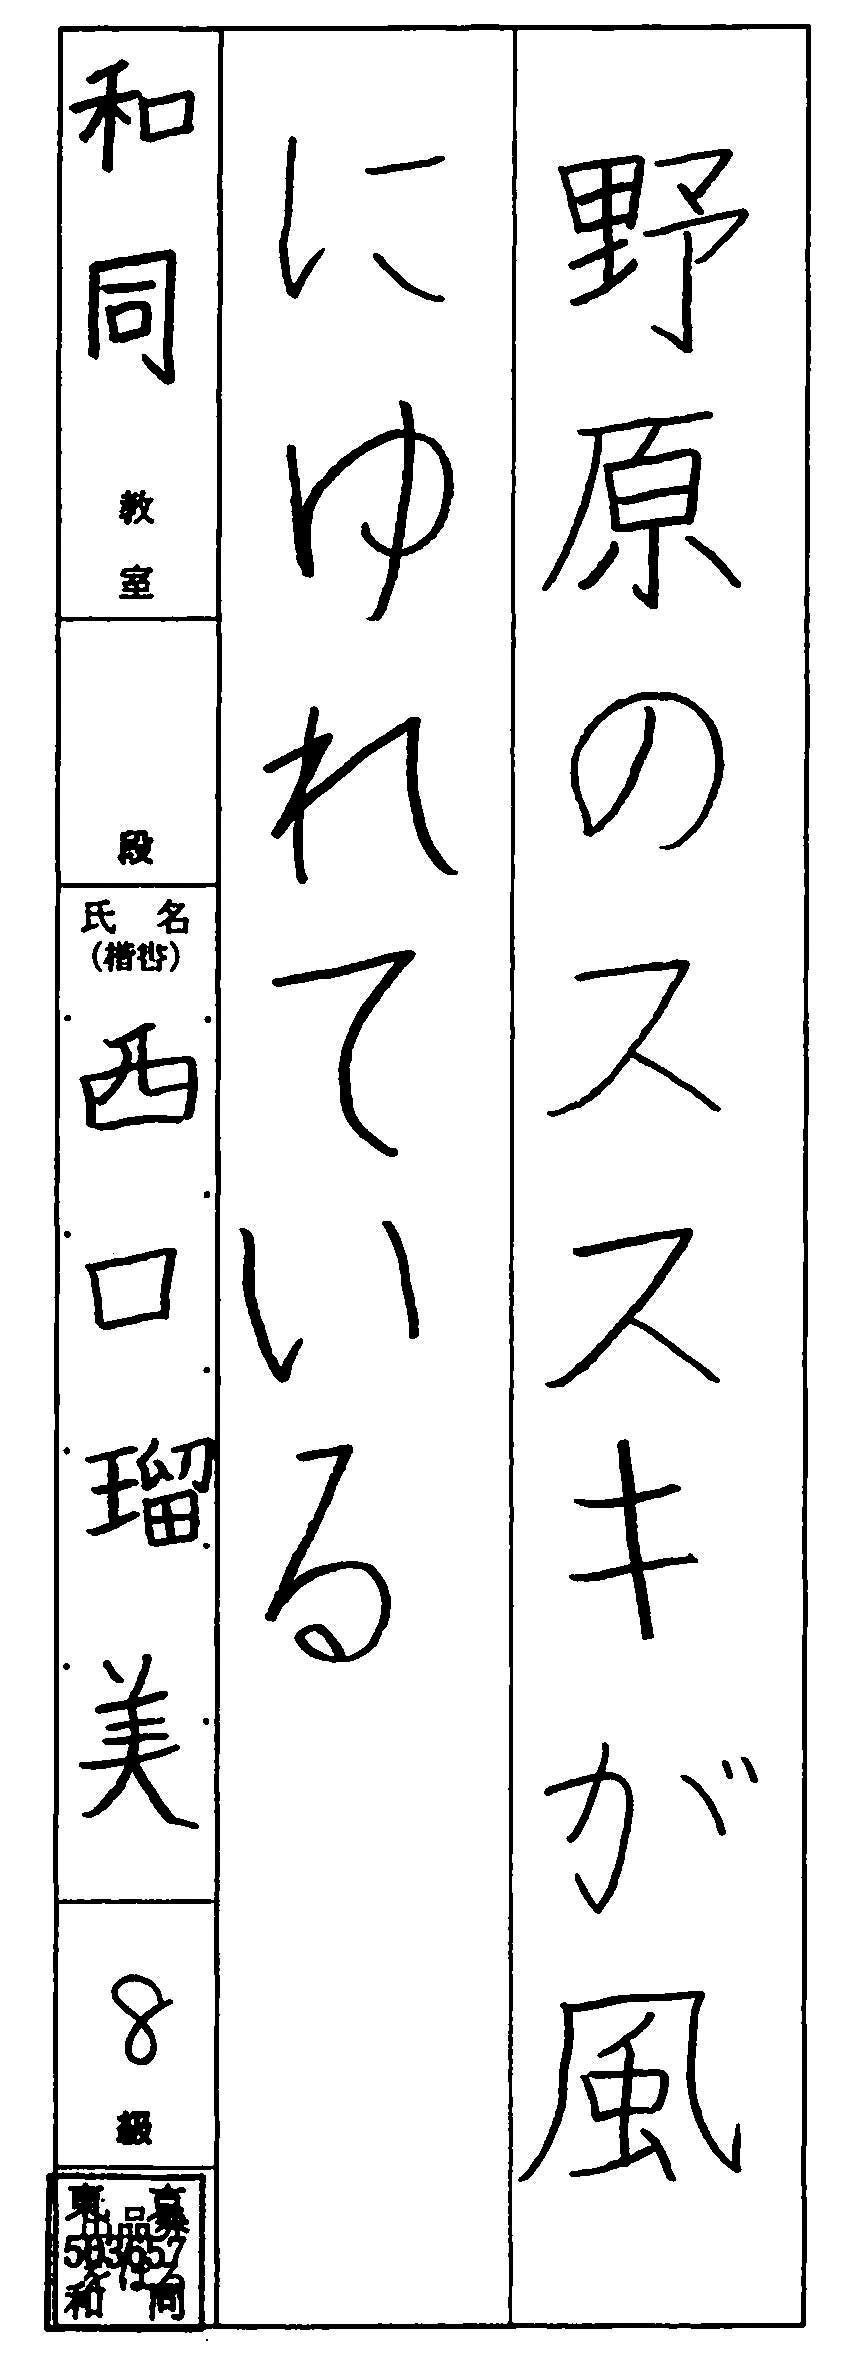 野原のススキが風
にゆれている
和同教室
段
氏名
(楷書)
西口瑠美
8級
東京
503657
和同